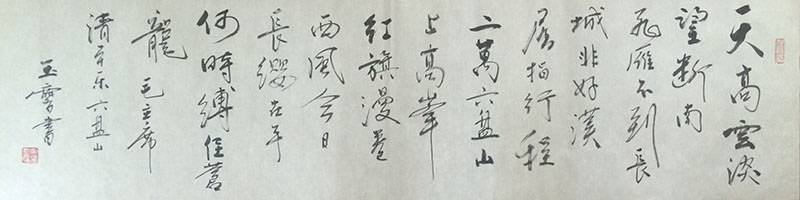 天高雲淡
望断南
飛雁不到長
城非好漢
屈指行程
二萬六盘山
上高峯
红旗漫卷
西風今日
長缨在手
何時縛住蒼
龍 毛主席
清平乐六盘山
玉書